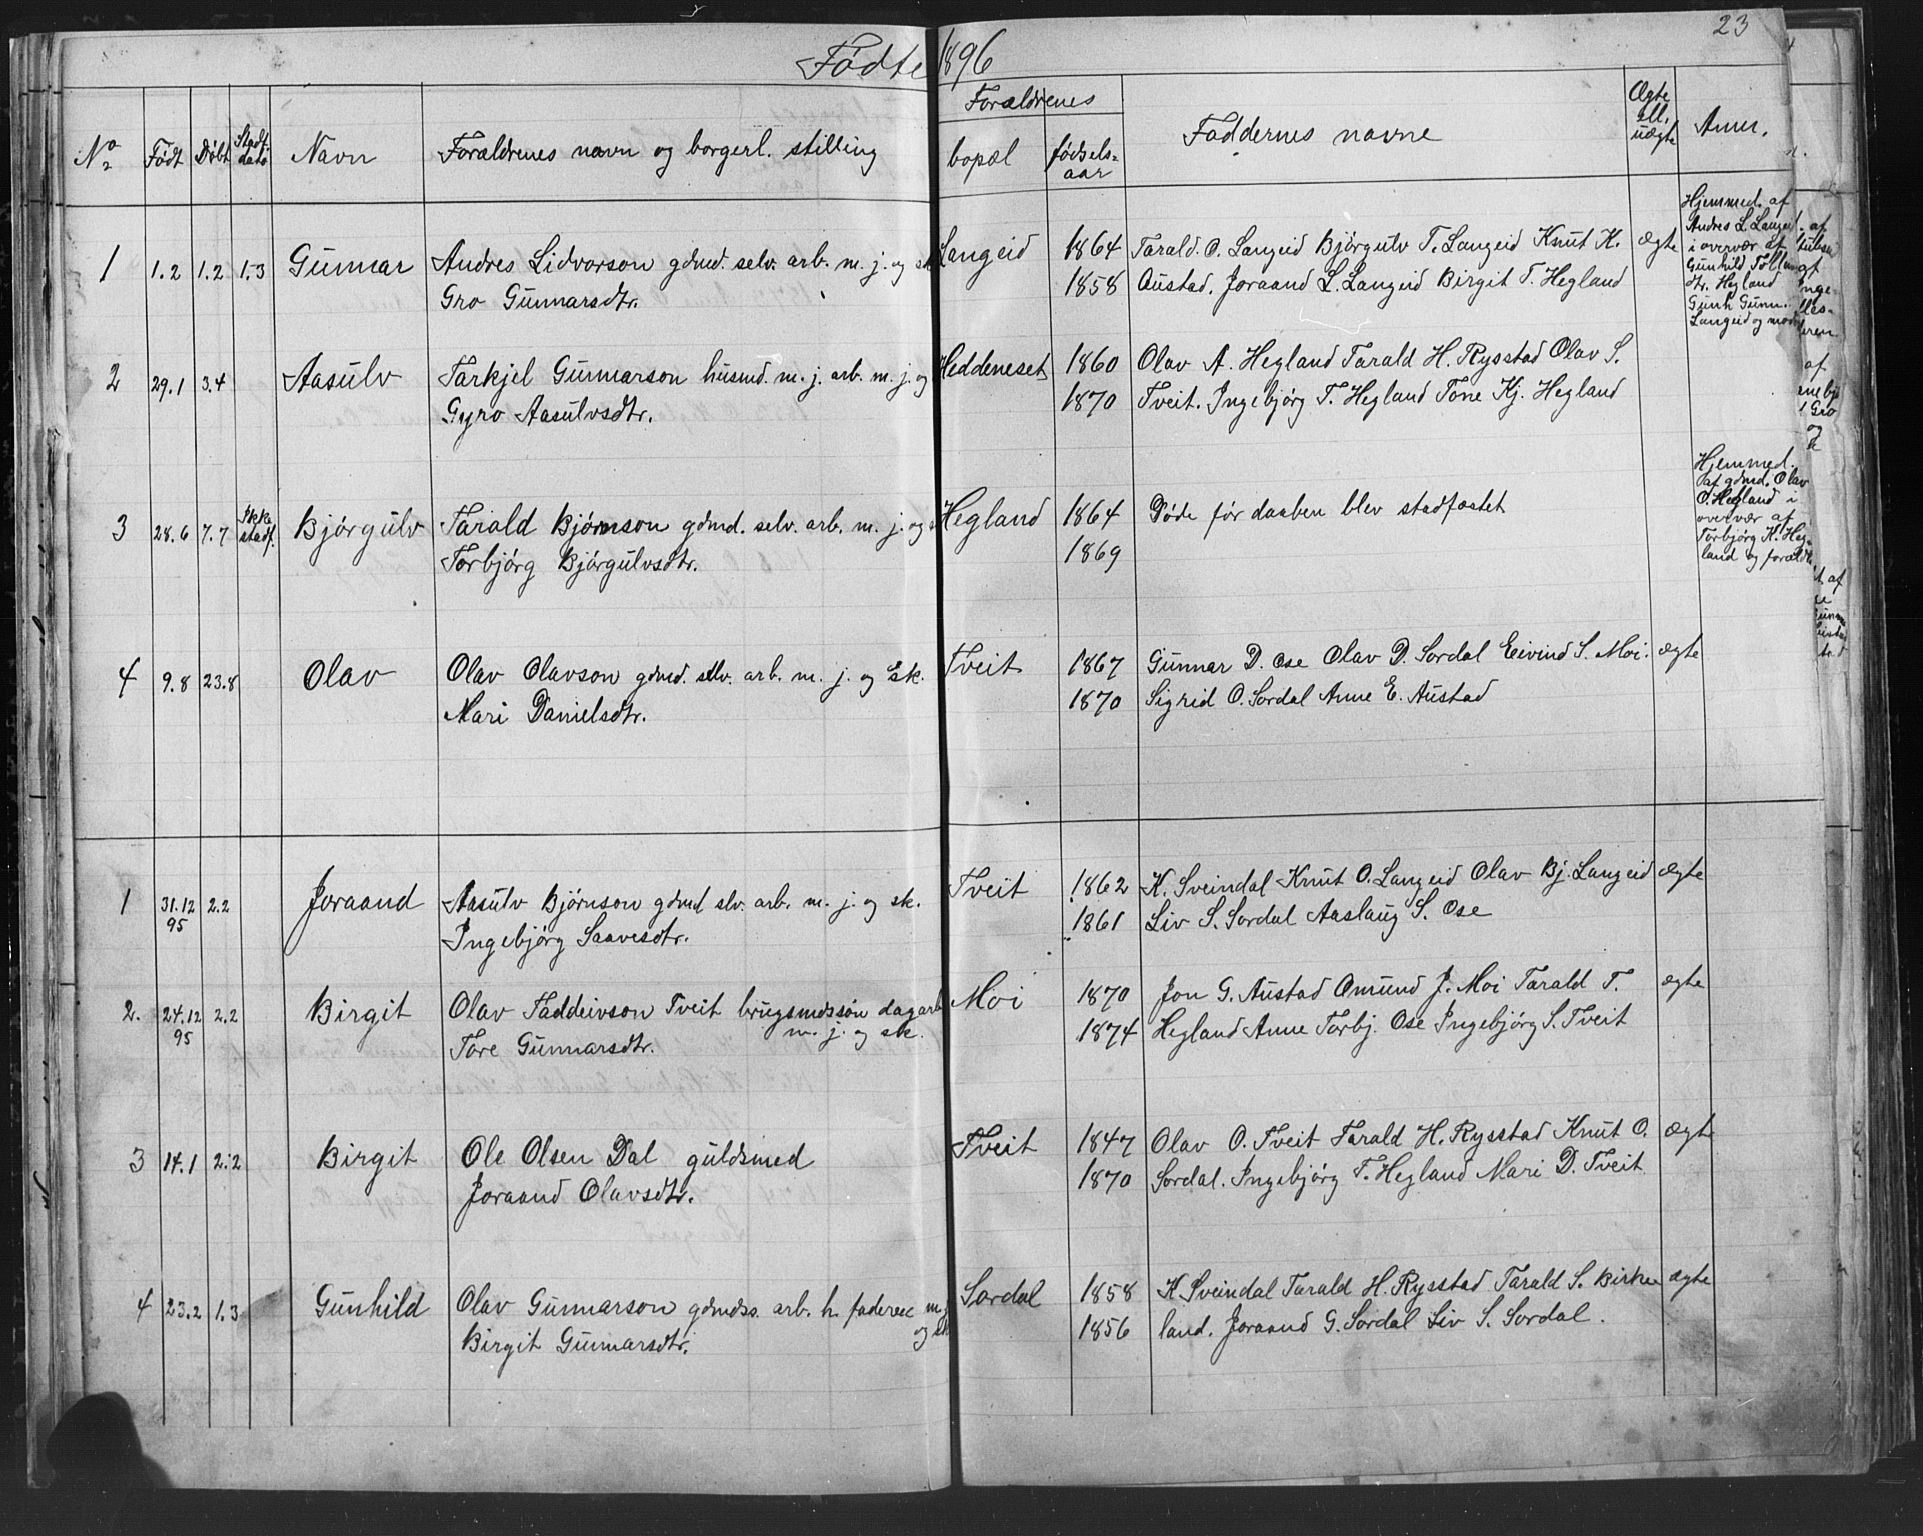 23
Fødte 1896
No Født Døbt Stadf. dato Navn Forældrenes navn og borgerl. stilling Forældrenes bopæl fødsels= aar Faddernes navne Ægte ell. uægte Anm.
1 1.2 1.2 1.3 Gunnar Andres Lidvorson gdmd. selv. arb. m. j. og Langeid 1864 Tarald. O. Langeid Bjørgulv T. Langeid Knut K. ægte
Gro Gunnarsdtr. 1858 Austad. Joraand L. Langeid Birgit T. Hegland
Hjemmed. af
Andres L. Langeid
i overvær af
Gunhild
dtr. Hegland
Gunh Gunn.
Langeid og
2 29.1 3.4 Aasulv Tarkjel Gunnarson husmd. m. j. arb. m. j. og Heddeneset 1860 Olav A. Hegland Tarald H. Rysstad Olav S.
Gyro Aasulvsdtr. 1870 Tveit. Ingebjørg T. Hegland Tone Kj. Hegland
3 28.6 7.7 Ikke stadf. Bjørgulv Tarald Bjørnson gdmd. selv. arb. m. j. og Hegland 1864 Døde før daaben blev stadfæstet
Torbjørg Bjørgulvsdtr. 1869
Hjemmed.
af gdmd. Olav
O. Hegland i
overvær af
Torbjørg K. Heg-
land og foræld
4 9.8 23.8 Olav Olav Olavson gdmd. selv. arb. m. j. og sk. Tveit 1867 Gunnar D. Ose Olav D. Sordal Eivind S. Moi. ægte
Mari Danielsdtr. 1870 Sigrid O. Sordal Anne E. Austad
1 31.12 95 2.2 Joraand Aasulv Bjørnson gdmd slv. arb. m. j. og sk. Tveit 1862 K. Sveindal Knut O. Langeid Olav Bj. Langeid ægte
Ingebjørg Saavesdtr. 1861 Liv S. Sordal Aaslaug S. Ose
2. 24.12 95 2.2 Birgit Olav Taddeivson Tveit brugsmdssøn dagarb Moi 1870 Jon G. Austad Omund J. Moi Tarald T. ægte
m. j. og sk.
Tore Gunnarsdtr. 1874 Hegland Anne Torbj. Ose Ingebjørg S. Tveit
3 14.1 2.2 Birgit Ole Olsen Dal guldsmed Tveit 1847 Olav O. Tveit Tarald H. Rysstad Knut O. ægte
Joraand Olavsdtr. 1870 Sordal. Ingebjørg T. Hegland Mari D. Tveit
4 23.2 1.3 Gunhild Olav Gunnarson gdmdss. arb. h. faderen m. j. Sordal 1858 K. Sveindal Tarald H. Rysstad Tarald S. Birke ægte
og sk
Birgit Gunnarsdtr. 1856 land. Joraand G. Sordal Liv S. Sordal.